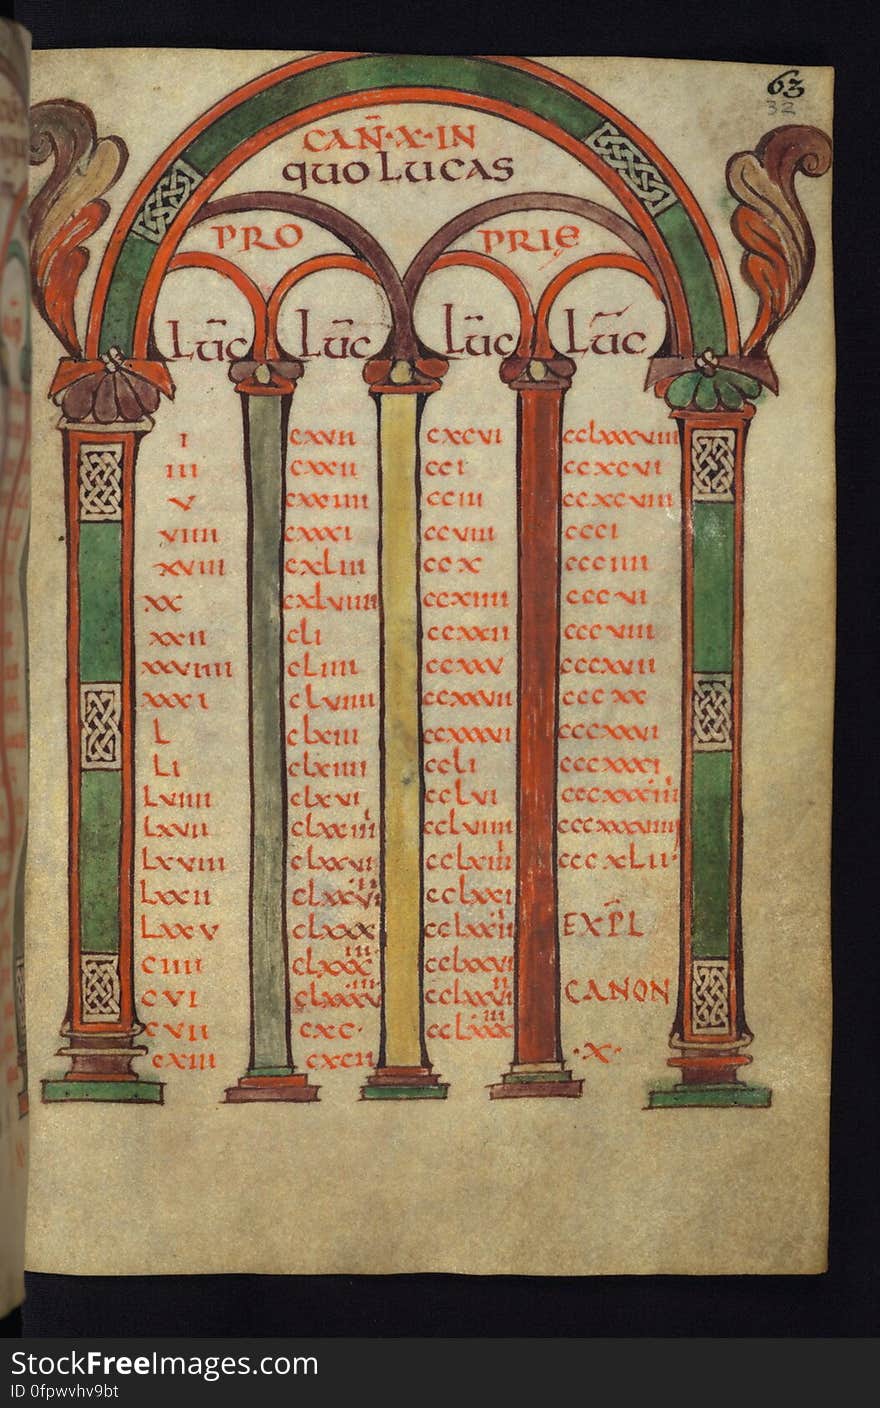 63
32
CAN̄·X·IN
quo LUCAS
PRO PRIE
LŪC LŪC LŪC LŪC
I cxvii cxcvi cclxxxviii
iii cxxii cci ccxcvi
v cxxiiii cciii ccxcviii
viiii cxxxi ccviii ccci
xviii cxliii ccx ccciiii
xx cxlviiii ccxiiii cccvi
xxii cli ccxxii cccviii
xxviiii cliiii ccxxv cccxvii
xxxi clviiii ccxxvii cccxx
L clxiii ccxxxvi cccxxvi
Li clxiiii ccli cccxxxi
Lviiii clxvi cclvi
Lxvii cclviiii
Lxviii clxxvi cclxiii cccxlii·
Lxxii cclxxi
Lxxv clxxx EXP̄L
ciiii cclxxvi
cvi CANON
cvii cxc·
cxiii cxcii ·X·
StockFreeImages.com
ID 0fpwvhv9bt